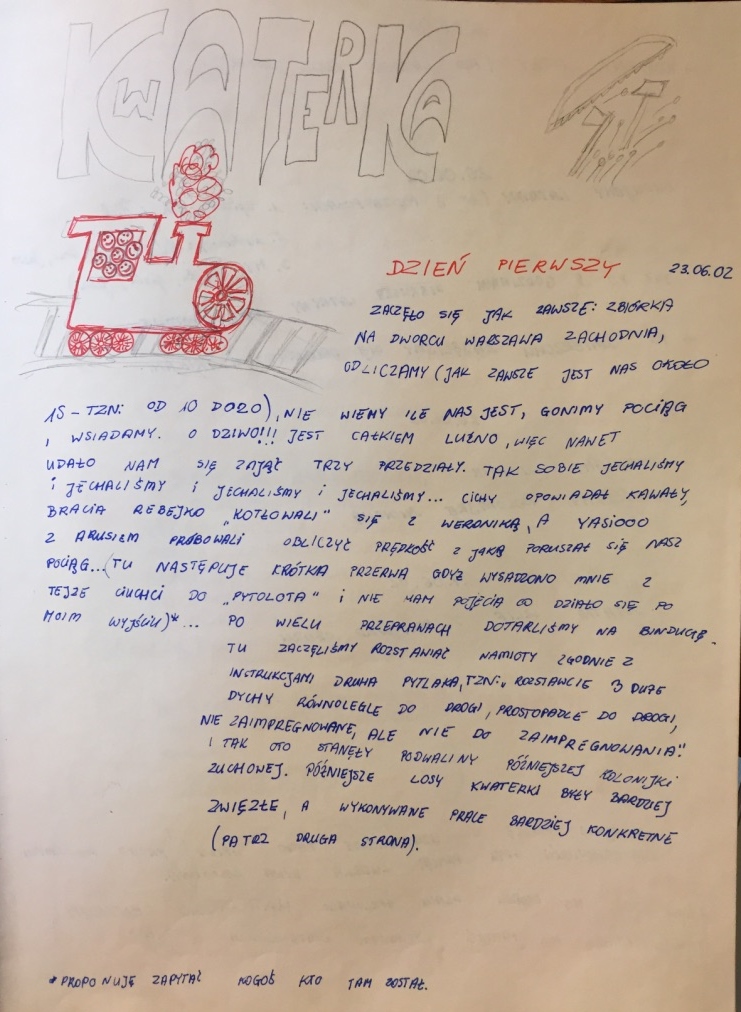 KWATERKA
DZIEŃ PIERWSZY 23.06.02
ZACZĘŁO SIĘ JAK ZAWSZE: ZBIÓRKA
NA DWORCU WARSZAWA ZACHODNIA,
ODLICZAMY (JAK ZAWSZE JEST NAS OKOŁO
15 - TZN: OD 10 DO 20), NIE WIEMY ILE NAS JEST, GONIMY POCIĄG
, WSIADAMY. O DZIWO!!! JEST CAŁKIEM LUŹNO, WIĘC NAWET
UDAŁO NAM SIĘ ZAJĄĆ TRZY PRZEDZIAŁY. TAK SOBIE JECHALIŚMY
I JECHALIŚMY I JECHALIŚMY I JECHALIŚMY... CICHY OPOWIADAŁ KAWAŁY,
BRACIA REBEJKO „KOTŁOWALI" SIĘ Z WERONIKĄ, A YASIOOO
Z ARUSIEM PRÓBOWALI OBLICZYĆ PRĘDKOŚĆ Z JAKĄ PORUSZAŁ SIĘ NASZ
POCIĄG... (TU NASTĘPUJE KRÓTKA PRZERWA GDYŻ WYSADZONO MNIE Z
TEJŻE CIUCHCI DO „PYTOLOTA" I NIE MAM POJĘCIA CO DZIAŁO SIĘ PO
MOIM WYJŚCIU)*... PO WIELU PRZEPRAWACH DOTARLIŚMY NA BINDUGĘ.
TU ZACZĘLIŚMY ROZSTAWIAĆ NAMIOTY ZGODNIE Z
INSTRUKCJAMI DRUHA PYTLAKA, TZN: „ROZSTAWCIE 3 DUŻE
DYCHY RÓWNOLEGLE DO DROGI, PROSTOPADLE DO DROGI,
NIE ZAIMPREGNOWANE, ALE NIE DO ZAIMPREGNOWANIA".
I TAK OTO STANĘŁY PODWALINY PÓŹNIEJSZEJ KOLONIJKI
ZUCHOWEJ. PÓŹNIEJSZE LOSY KWATERKI BYŁY BARDZIEJ
ZWIĘZŁE, A WYKONYWANE PRACE BARDZIEJ KONKRETNE
(PATRZ DRUGA STRONA).
*PROPONUJĘ ZAPYTAĆ KOGOŚ KTO TAM ZOSTAŁ.